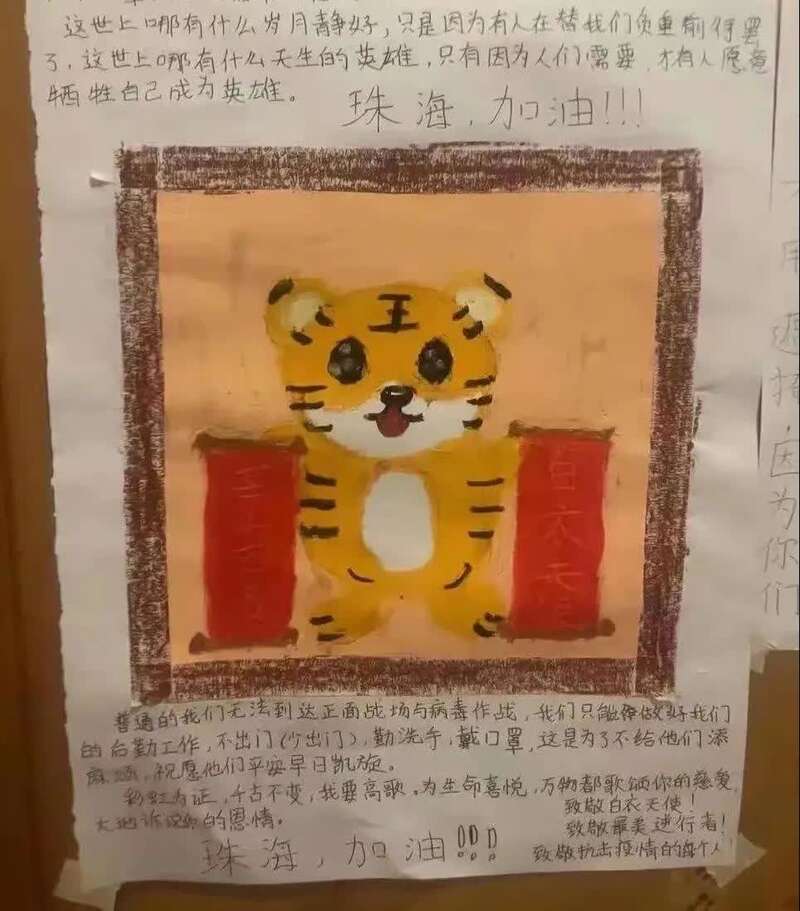 这世上哪有什么岁月静好，只是因为有人在替我们负重前行罢
了，这世上哪有什么天生的英雄，只有因为人们需要，才有人愿意
牺牲自己成为英雄。
珠海，加油!!!
王
白衣天
普通的我们无法到达正面战场与病毒作战，我们只能做好我们
的后勤工作，不出门(少出门)，勤洗手，戴口罩，这是为了不给他们添
麻烦，祝愿他们平安早日凯旋。
彩虹为证，千古不变，我要高歌。为生命喜悦，万物都歌颂你的慈爱，
大地诉说你的恩情。
致敬白衣天使！
致敬最美逆行者！
致敬抗击疫情的每个人！
珠海，加油!!!
因为你们